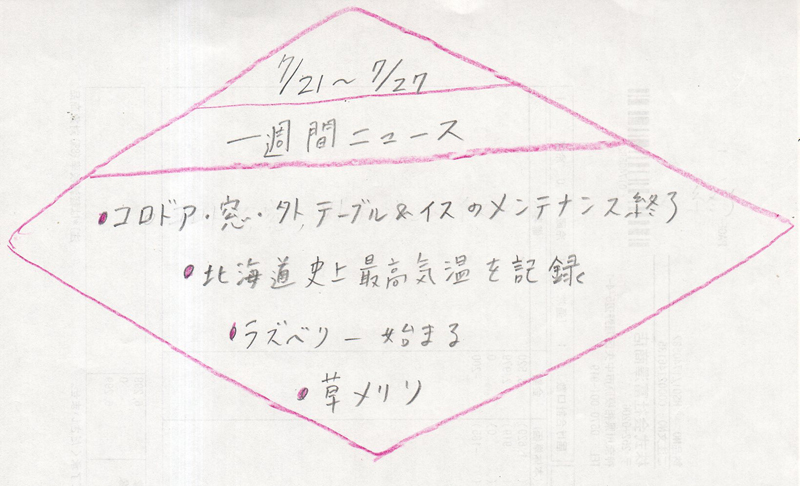 7/21〜7/27
一週間ニュース
・コロドア・窓・外、テーブル&イスのメンテナンス終了
・北海道史上最高気温を記録
・ラズベリー始まる
・草メリリ